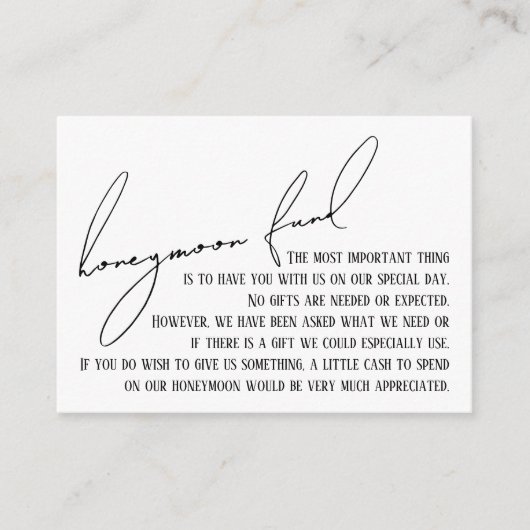 honeymoon fund
The most important thing
is to have you with us on our special day.
No gifts are needed or expected.
However, we have been asked what we need or
if there is a gift we could especially use.
If you do wish to give us something, a little cash to spend
on our honeymoon would be very much appreciated.